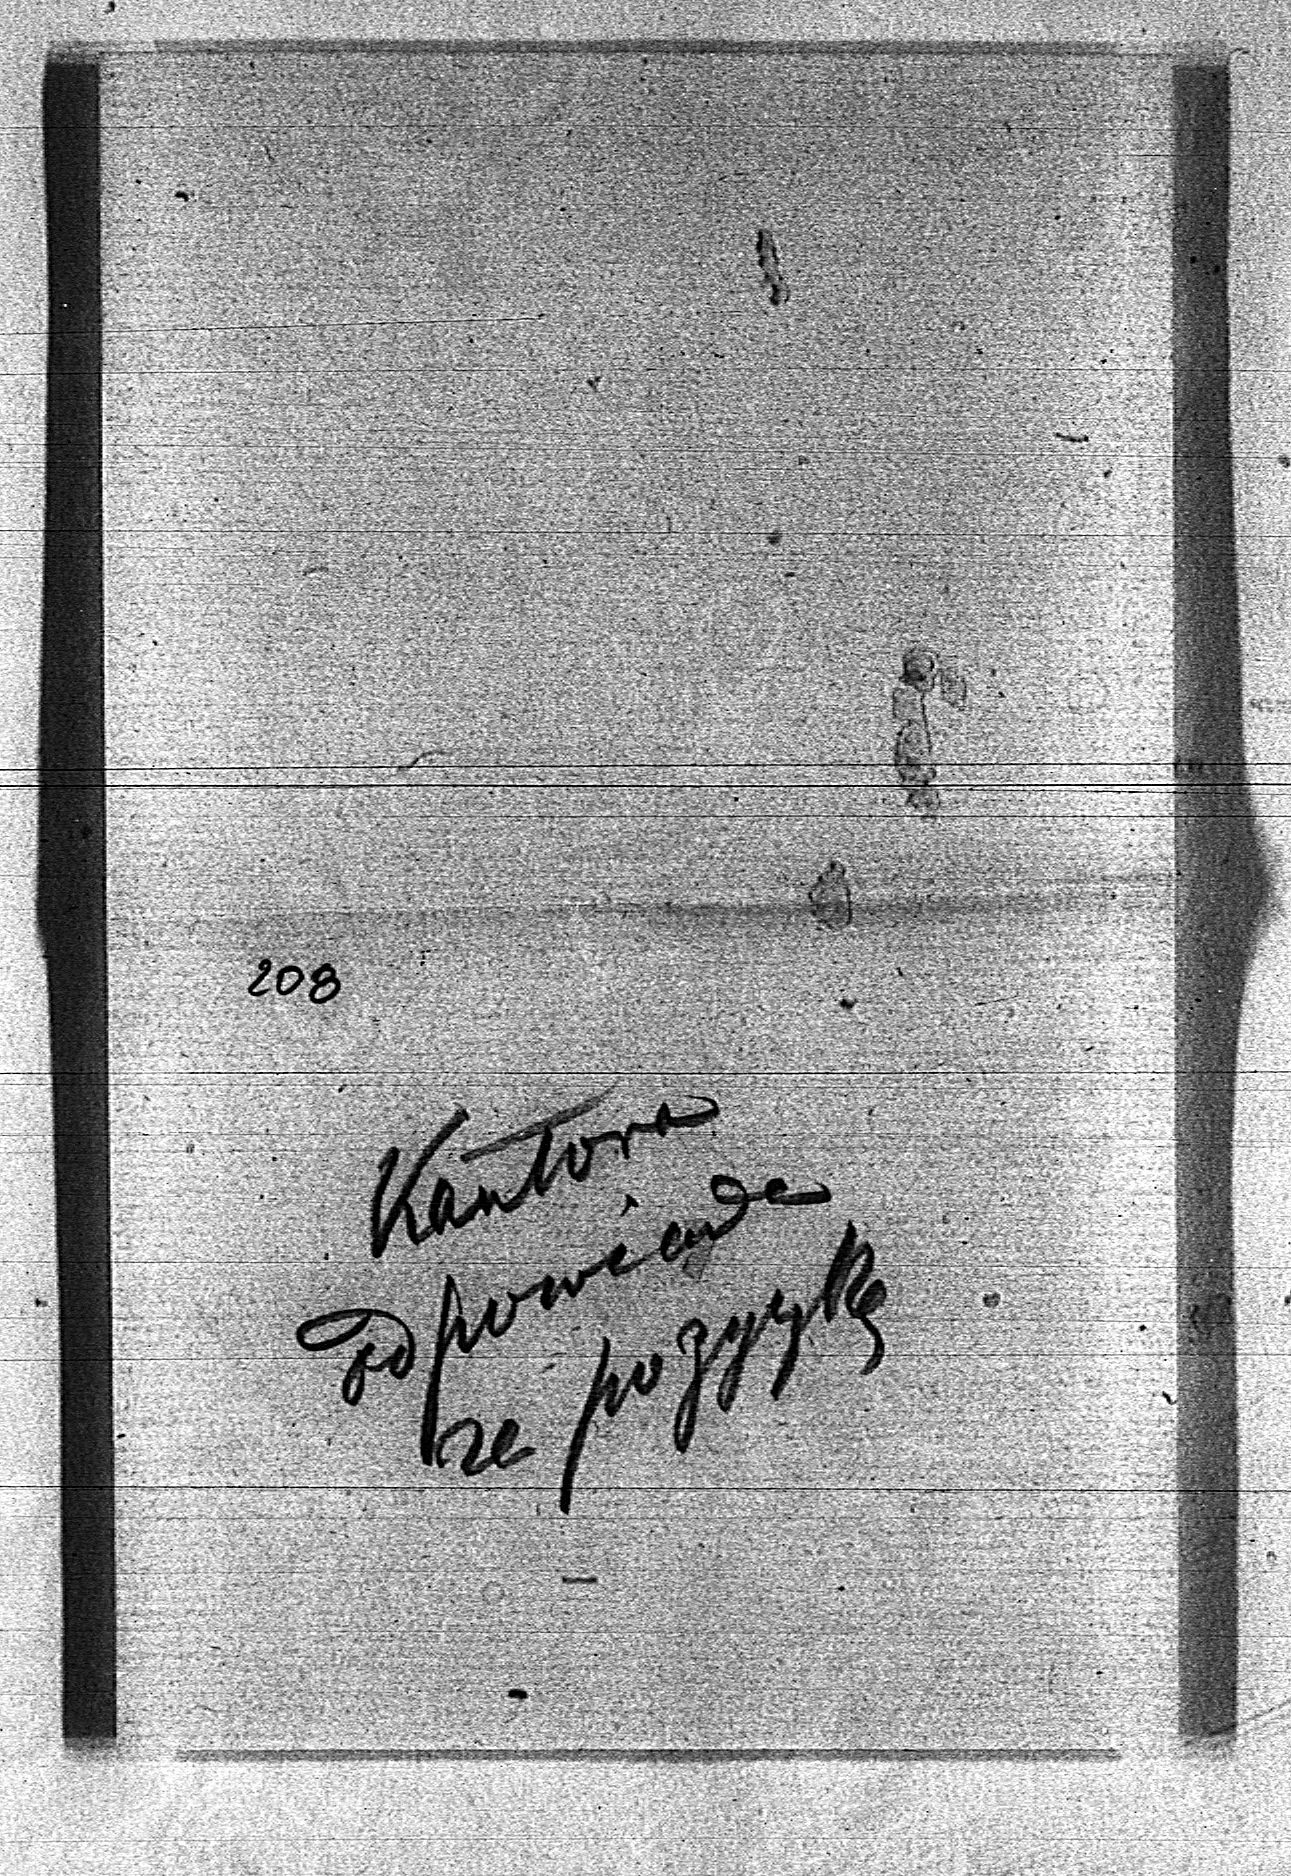 208
Kantora
odpowiada
ze pożyczkę
—